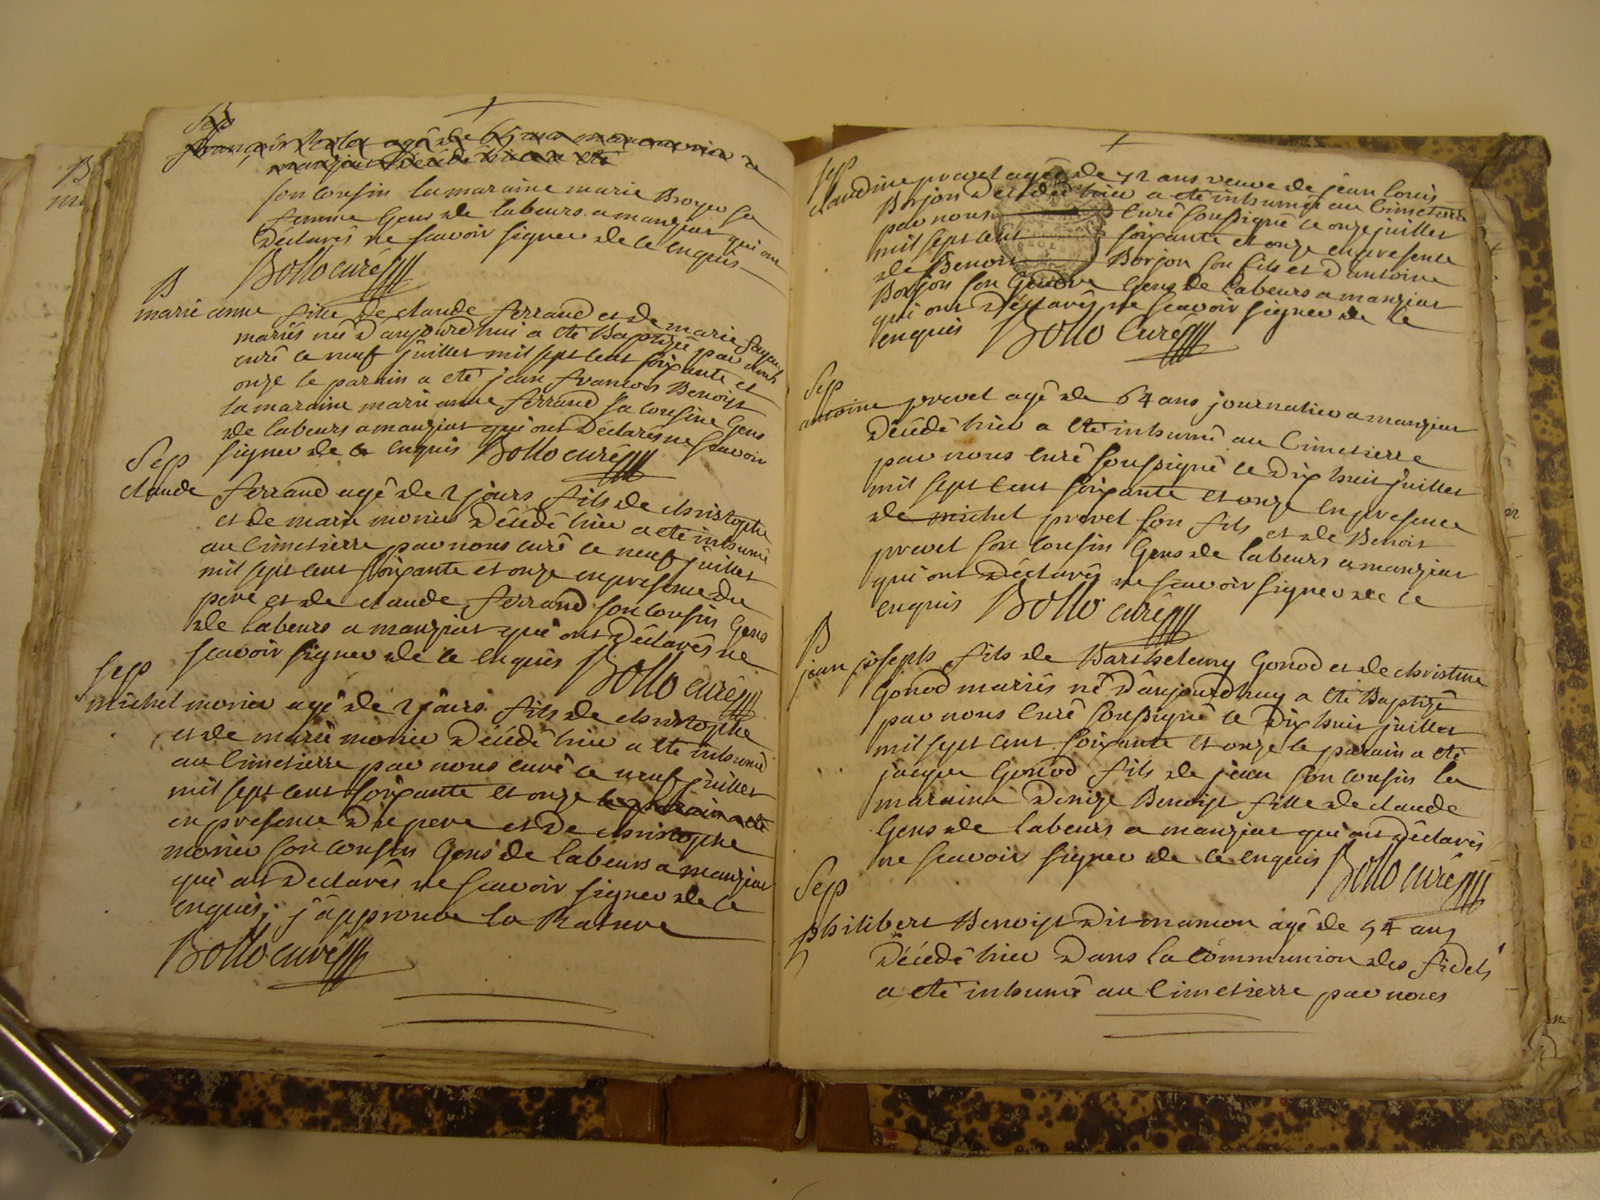 Sep
son cousin la maraine marie Broyer sa
femme Gens de labeurs a manziat qui ont
Déclarés ne scavoir signer de ce enquis
Bollo curé
B
marie anne fille de claude ferrand et de marie
mariés née d'aujourdhui a été Baptizée par nous
curé ce neuf juillet mil sept cent soixante et
onze le parain a eté jean francois Benoist
la maraine marie anne ferrand sa cousine Gens
de labeurs a manziat qui ont Déclarés ne scavoir
signer de ce enquis Bollo curé
Sep
claude ferrand agé de 2 jours fils de christophe
et de marie monier Décédé hier a eté inhumé
au Cimetierre par nous curé ce neuf juillet
mil sept cent soixante et onze en presence du
pere et de claude ferrand son cousin Gens
de labeurs a manziat qui ont Déclarés ne
scavoir signer de ce enquis Bollo curé
Sep
michel monier agé de 2 jours fils de christophe
et de marie monier Décédé hier a eté inhumé
au Cimetierre par nous curé ce neuf juillet
mil sept cent soixante et onze le parain a eté
en presence du pere et de christophe
monier son cousin Gens de labeurs a manziat
qui ont Declarés ne scavoir signer de ce
enquis; j'approuve la Rature
Bollo curé
Sep
claudine prevet agée de 72 ans veuve de jean louis
Borjon Décédée hier a eté inhumée au Cimetierre
par nous curé soussigné ce onze juillet
mil sept cent soixante et onze en presence
de Benoit Borjon son fils et d'antoine
Borjon son Gendre Gens de labeurs a manziat
qui ont Déclarés ne scavoir signer de ce
enquis Bollo Curé
Sep
antoine prevet agé de 64 ans journalier a manziat
Décédé hier a eté inhumé au Cimetierre
par nous curé soussigné ce Dix huit juillet
mil sept cent soixante et onze en presence
de michel prevet son fils et de Benoit
prevet son cousin Gens de labeurs a manziat
qui ont Déclarés ne scavoir signer de ce
enquis Bollo curé
B
jean joseph fils de Barthelemy Gonod et de christine
Gonod mariés né d'aujourdhuy a eté Baptizé
par nous Curé soussigné ce Dix huit juillet
mil sept cent soixante et onze le parain a eté
jacque Gonod fils de jean son cousin la
maraine Denize Benoist fille de claude
Gens de labeurs a manziat qui ont Déclarés
ne scavoir signer de ce enquis Bollo curé
Sep
philibert Benoist Dit manion agé de 54 ans
Décédé hier Dans la Communion des fidels
a eté inhumé au Cimetierre par nous